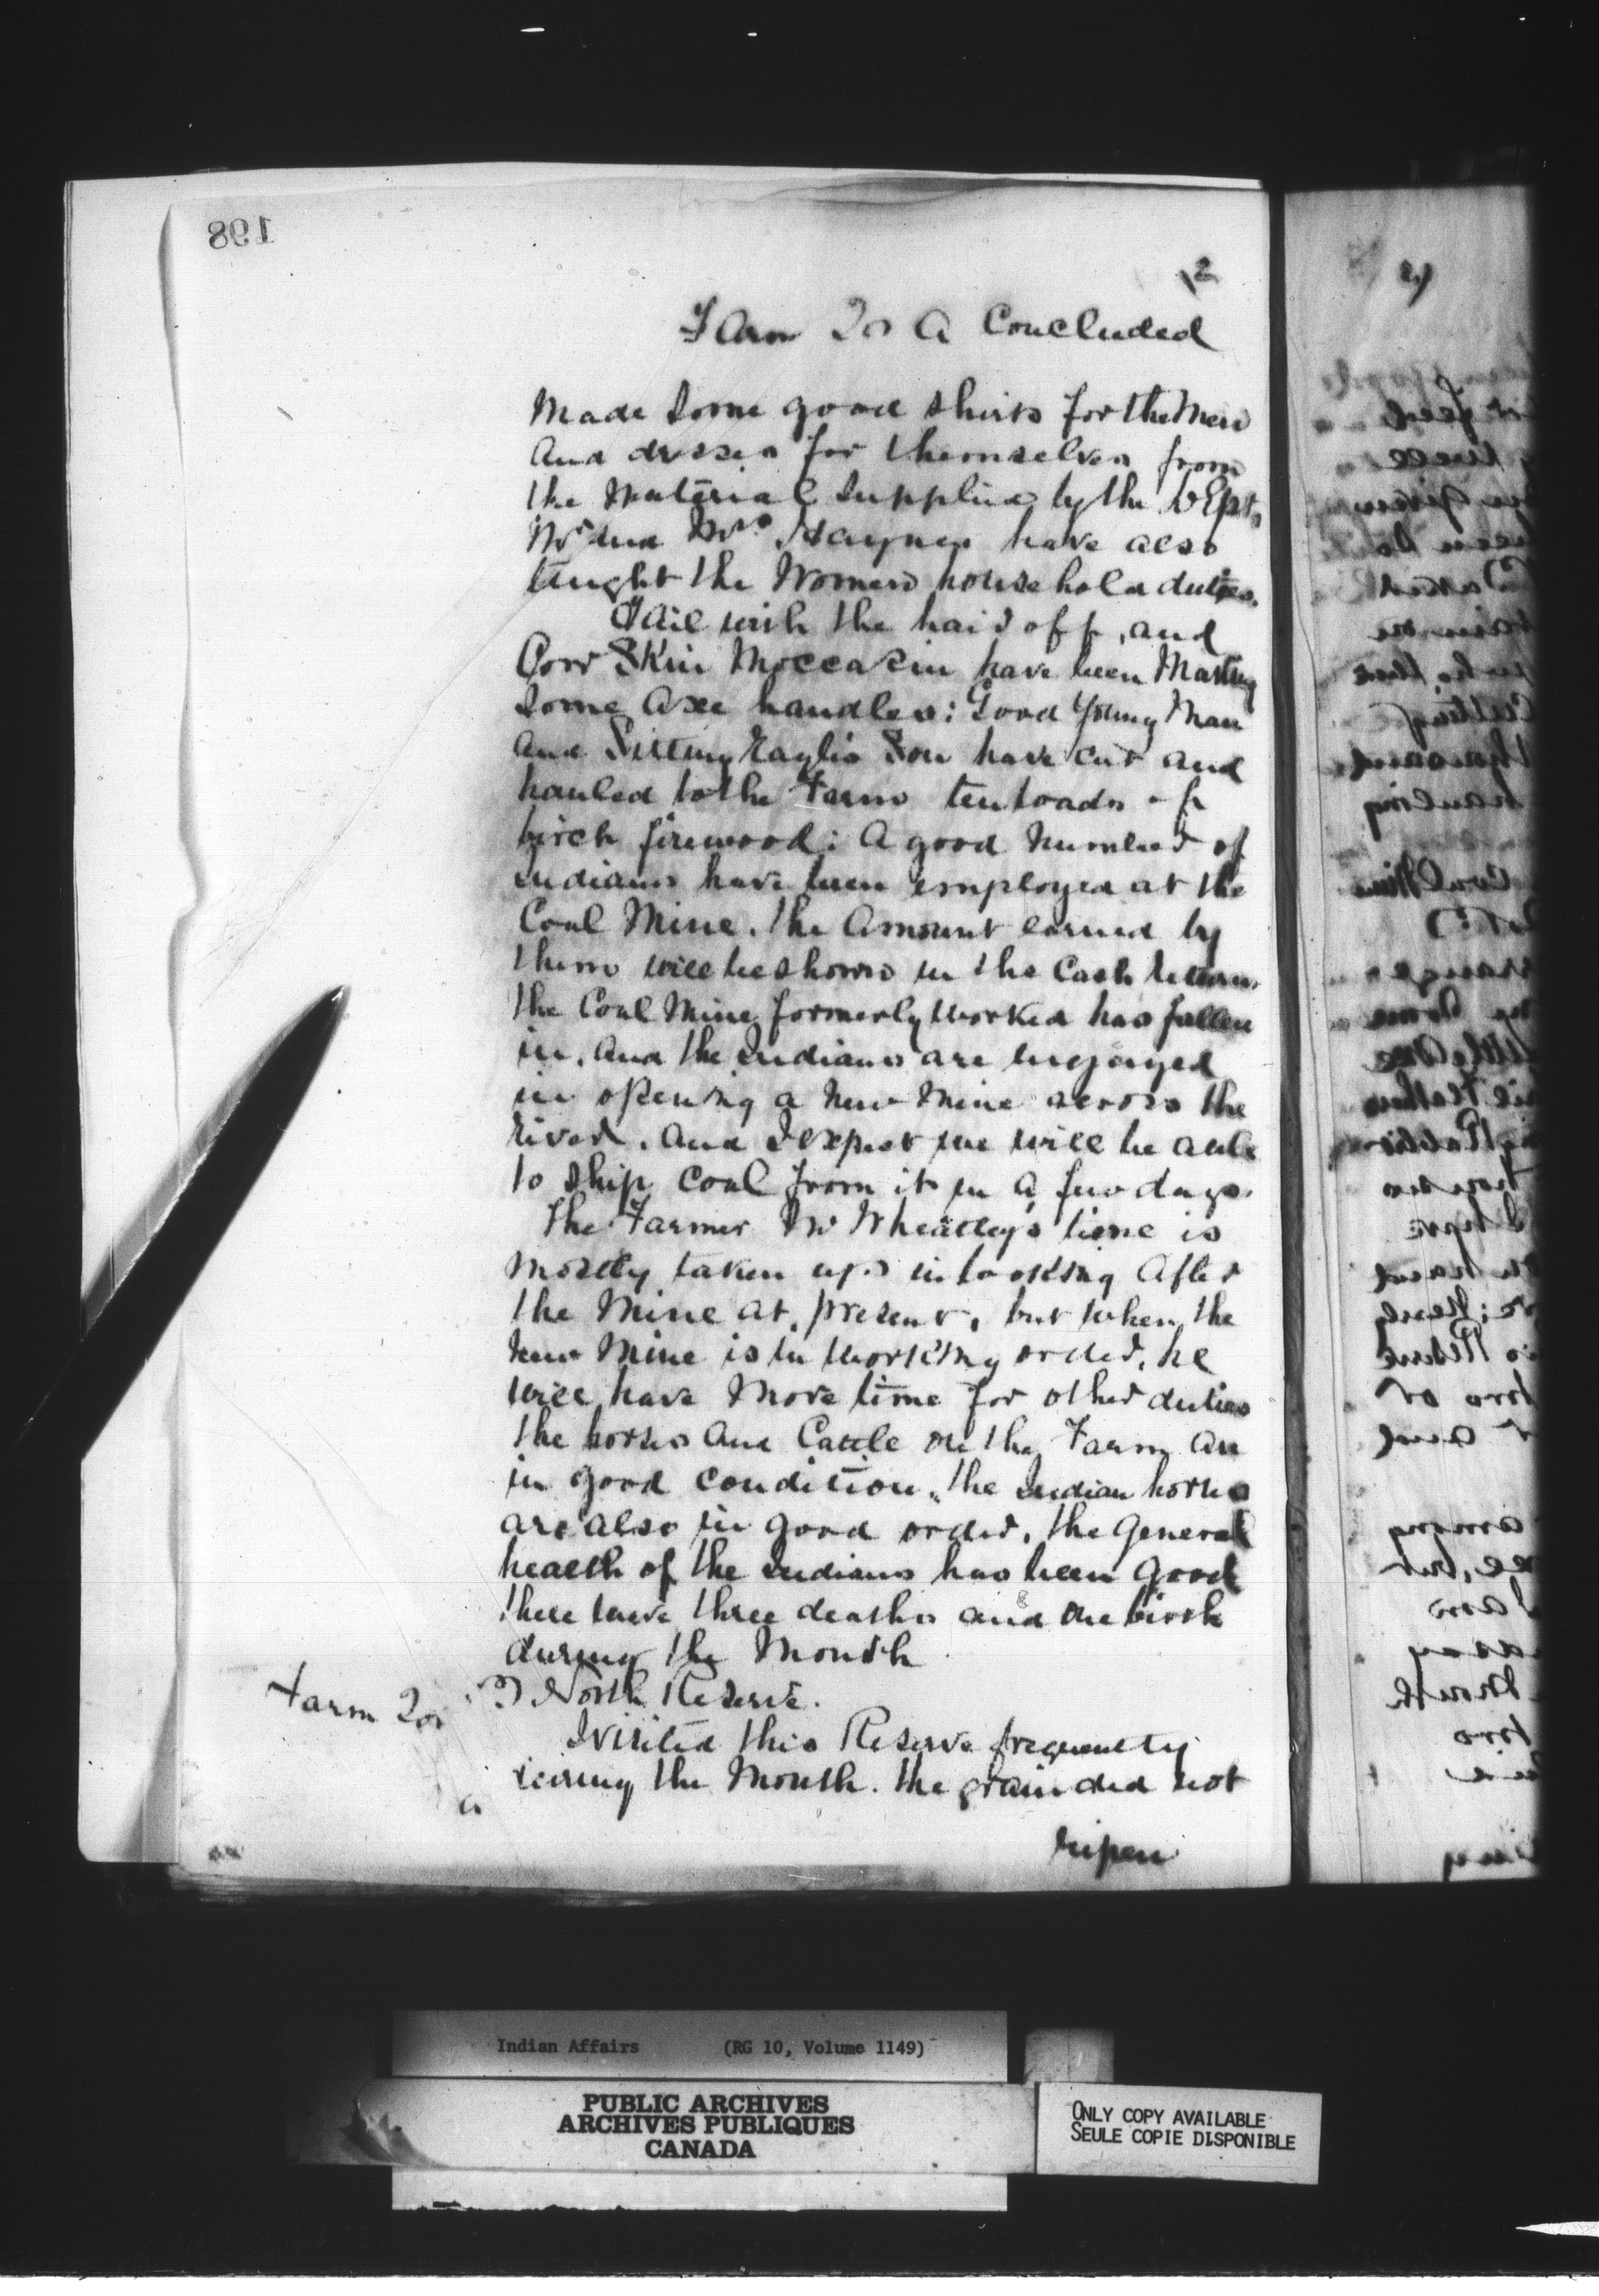 198
2
Farm 20 A Concluded
Made Some good shirts for the Men
and dresses for themselves from
the Material Supplied by the DEpt,
Mr and Mrs Haynes have also
taught the Women household duties.
Tail with the hair off, and
Cow Skin Moccasin have been Making
Some Axe handles: Good Young Man
and Sitting Eagle's Son have cut and
hauled to the Farm ten loads of
birch firewood: A good Number of
Indians have been employed at the
Coal Mine. the Amount earned by
them will be shown in the Cash return.
the Coal Mine formerly worked has fallen
in. and the Indians are engaged
in opening a new Mine across the
river. and I expect we will be able
to ship Coal from it in a few days.
The Farmer Mr Wheatley's time is
Mostly taken up in looking After
the Mine at present, but when the
new Mine is in working order, he
will have More time for other duties
the horses and Cattle on the Farm are
in good condition. the Indian horses
are also in good order. the General
health of the Indians has been good
there were three deaths and one birth
during the Month
Farm 20
B North Reserve.
I visited this Reserve frequently
during the Month. the grain did not
ripen
Indian Affairs (RG 10, Volume 1149)
PUBLIC ARCHIVES
ARCHIVES PUBLIQUES
CANADA
ONLY COPY AVAILABLE
SEULE COPIE DISPONIBLE